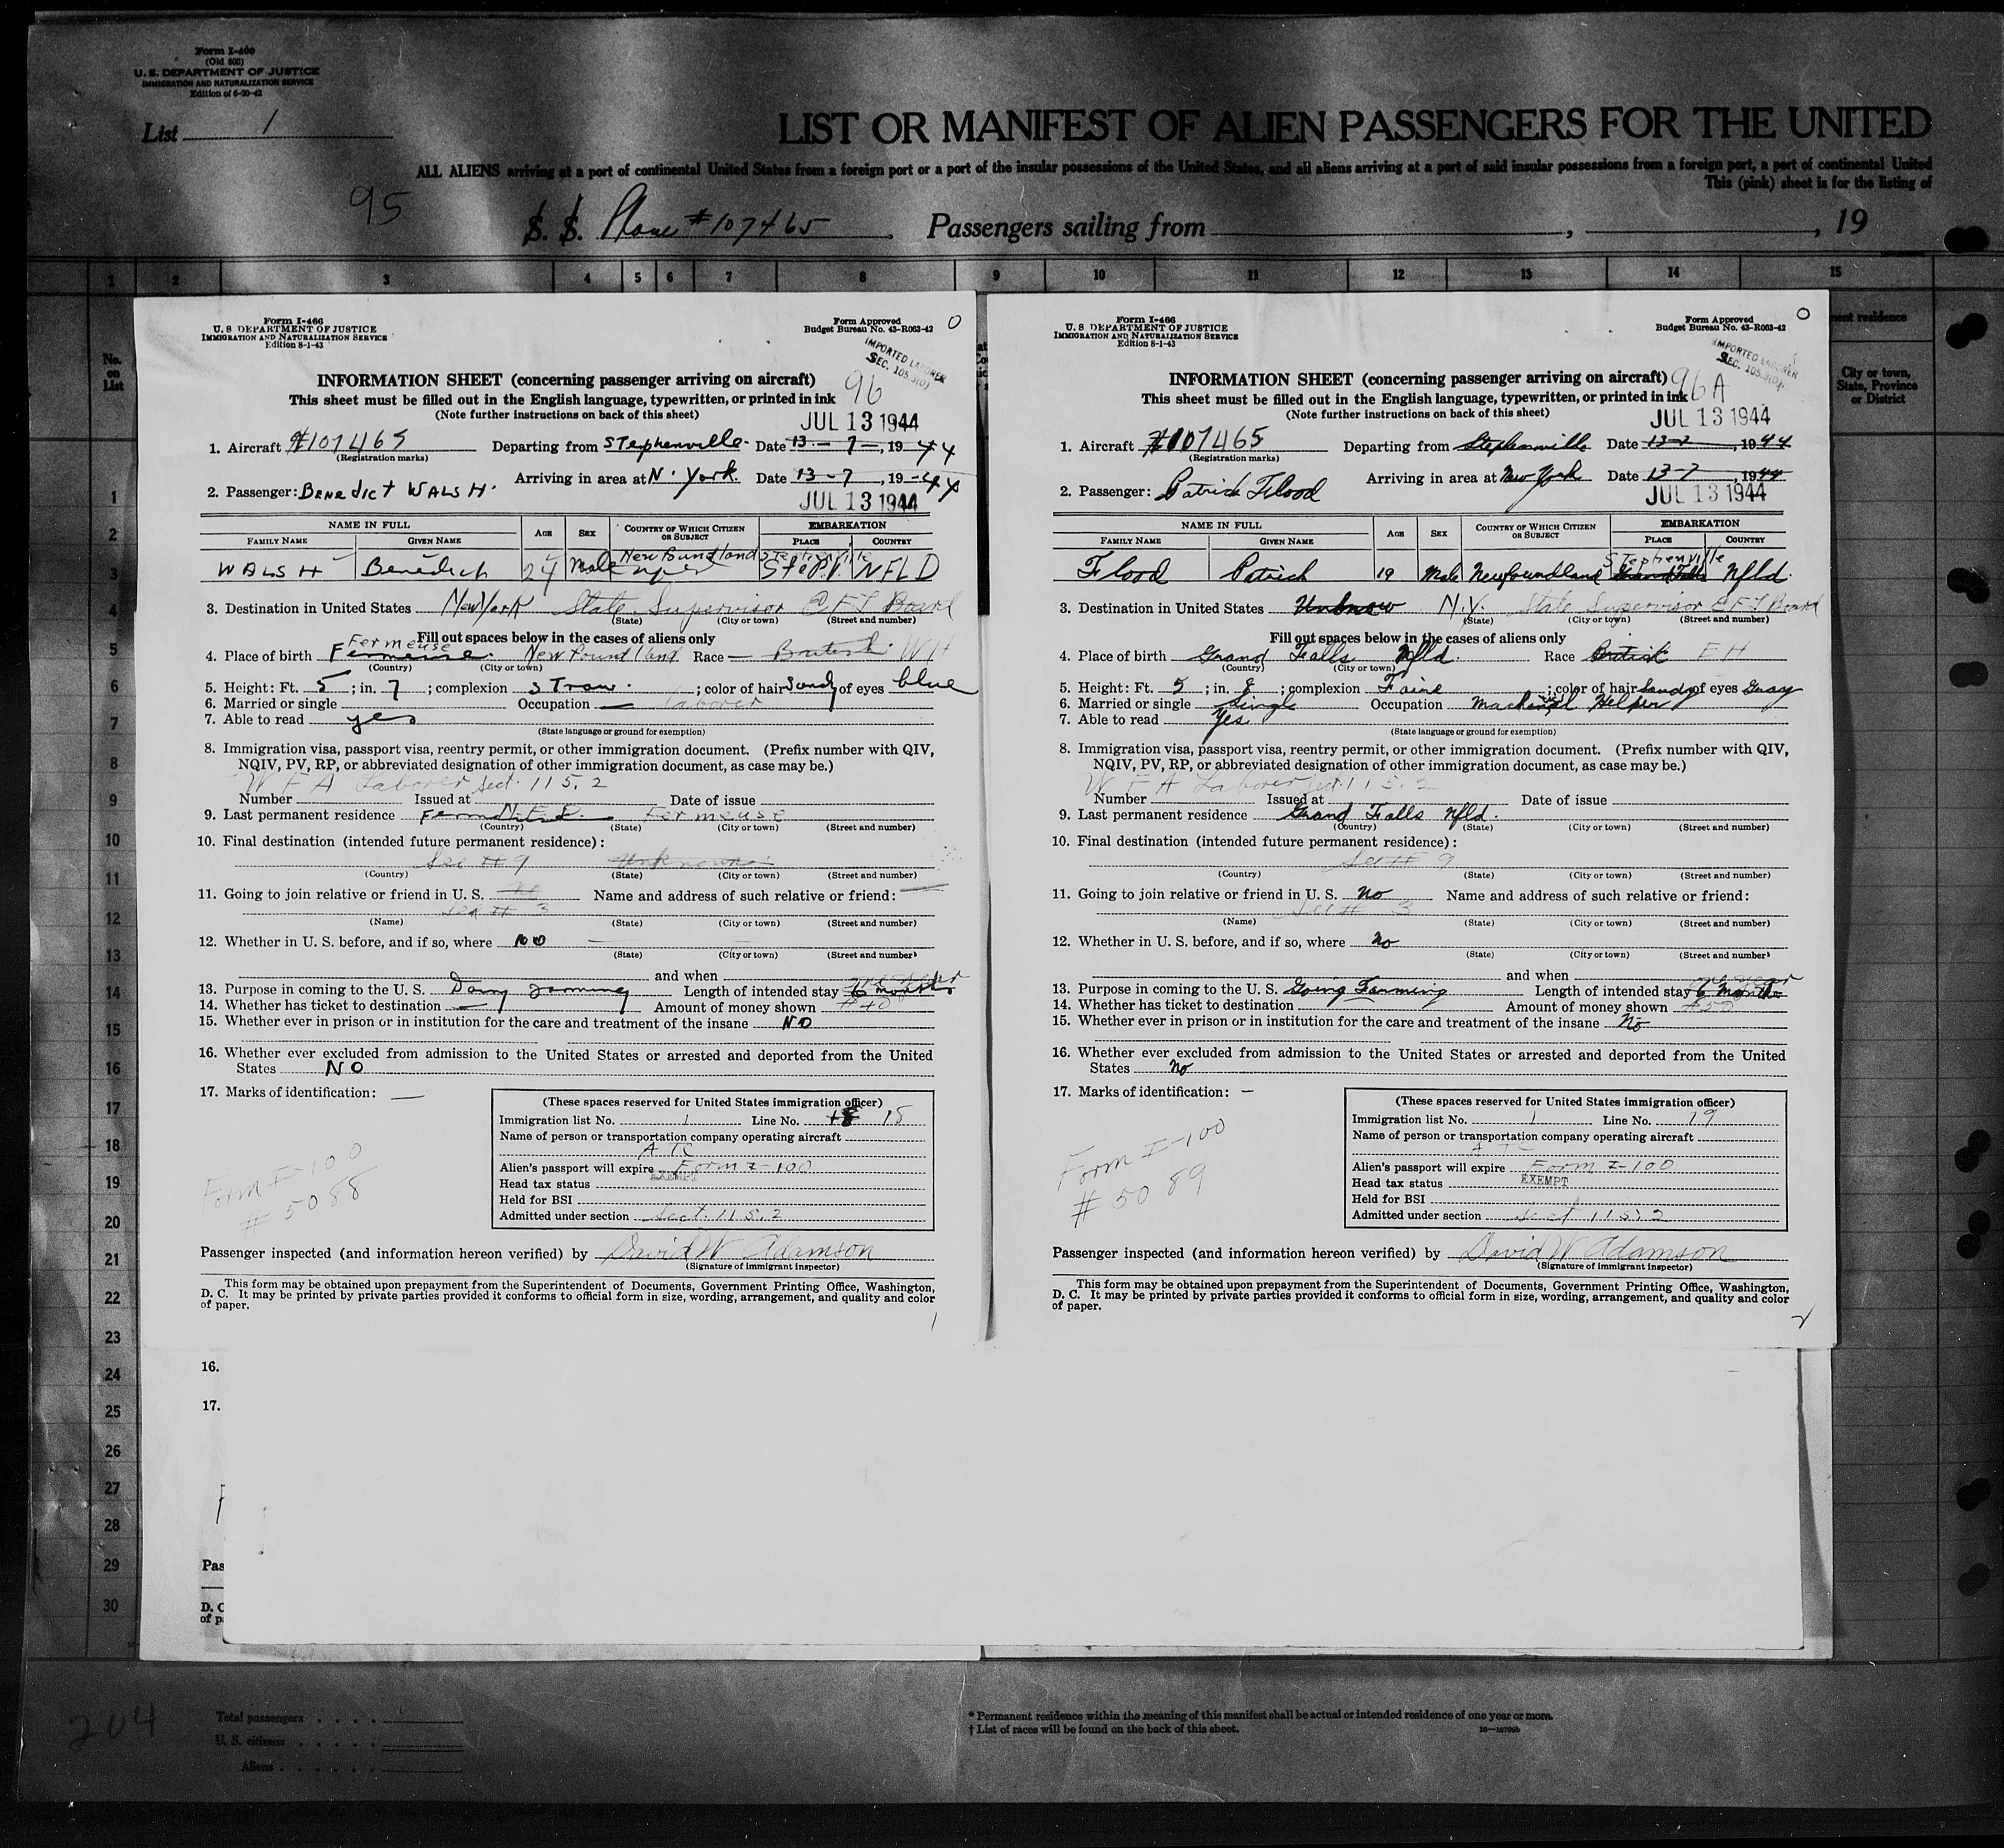 Form I-460
(Old 500)
U. S. DEPARTMENT OF JUSTICE
IMMIGRATION AND NATURALIZATION SERVICE
Edition of 6-20-42
List 1
LIST OR MANIFEST OF ALIEN PASSENGERS FOR THE UNITED
ALL ALIENS arriving at a port of continental United States from a foreign port or a port of the insular possessions of the United States, and all aliens arriving at a port of said insular possessions from a foreign port, a port of continental United
This (pink) sheet is for the listing of
95
S. S. Plane #107465 Passengers sailing from , , 19
1 2 3 4 5 6 7 8 9 10 11 12 13 14 15
No. on List
ent residence
City or town, State, Province or District
1
2
3
4
5
6
7
8
9
10
11
12
13
14
15
16
17
18
19
20
21
22
23
24
25
26
27
28
29
30
Form I-466
U. S DEPARTMENT OF JUSTICE
IMMIGRATION AND NATURALIZATION SERVICE
Edition 8-1-43
Form Approved
Budget Bureau No. 43-R063-42
0
IMPORTED LABORER
SEC. 105.3(0)
INFORMATION SHEET (concerning passenger arriving on aircraft)
96
This sheet must be filled out in the English language, typewritten, or printed in ink
(Note further instructions on back of this sheet)
JUL 13 1944
1. Aircraft #107465 Departing from Stephenville. Date 13-7-, 19 44
(Registration marks)
Arriving in area at N. York. Date 13-7, 19-44
2. Passenger: Benedict WALSH.
JUL 13 1944
NAME IN FULL AGE SEX COUNTRY OF WHICH CITIZEN OR SUBJECT EMBARKATION
FAMILY NAME GIVEN NAME PLACE COUNTRY
Newfoundland Stephenville
WALSH Benedict 24 Male Step. NFLD
3. Destination in United States New York State Supervisor E F L Board
(State) (City or town) (Street and number)
Fill out spaces below in the cases of aliens only
Fermeuse
4. Place of birth Fermeuse. Newfoundland Race — British. WH
(Country) (City or town)
5. Height: Ft. 5; in. 7; complexion straw. ; color of hair Sandy of eyes blue
6. Married or single Occupation — laborer
7. Able to read yes
(State language or ground for exemption)
8. Immigration visa, passport visa, reentry permit, or other immigration document. (Prefix number with QIV,
NQIV, PV, RP, or abbreviated designation of other immigration document, as case may be.)
W F A Laborer Sect. 115.2
Number Issued at Date of issue
9. Last permanent residence Fermeuse
(Country) (State) (City or town) (Street and number)
10. Final destination (intended future permanent residence):
See # 9 Unknown
(Country) (State) (City or town) (Street and number)
11. Going to join relative or friend in U. S. no Name and address of such relative or friend: —
See # 3
(Name) (State) (City or town) (Street and number)
12. Whether in U. S. before, and if so, where no
(State) (City or town) (Street and number)
and when
13. Purpose in coming to the U. S. Dairy farming Length of intended stay 6 months
14. Whether has ticket to destination — Amount of money shown #40
15. Whether ever in prison or in institution for the care and treatment of the insane NO
16. Whether ever excluded from admission to the United States or arrested and deported from the United
States NO
17. Marks of identification: —
(These spaces reserved for United States immigration officer)
Immigration list No. 1 Line No. 18 15
Name of person or transportation company operating aircraft
A T C
Alien's passport will expire Form I-100
Head tax status EXEMPT
Held for BSI
Admitted under section Sect. 115.2
Form I-100
# 5088
Passenger inspected (and information hereon verified) by David W Adamson
(Signature of immigrant inspector)
This form may be obtained upon prepayment from the Superintendent of Documents, Government Printing Office, Washington,
D. C. It may be printed by private parties provided it conforms to official form in size, wording, arrangement, and quality and color
of paper.
1
Form I-466
U. S DEPARTMENT OF JUSTICE
IMMIGRATION AND NATURALIZATION SERVICE
Edition 8-1-43
Form Approved
Budget Bureau No. 43-R063-42
0
IMPORTED LABORER
SEC. 105.3(0)
INFORMATION SHEET (concerning passenger arriving on aircraft)
96A
This sheet must be filled out in the English language, typewritten, or printed in ink
(Note further instructions on back of this sheet)
JUL 13 1944
1. Aircraft #107465 Departing from Stephenville Date 13-7, 1944
(Registration marks)
Arriving in area at New York Date 13-7, 1944
2. Passenger: Patrick Flood
JUL 13 1944
NAME IN FULL AGE SEX COUNTRY OF WHICH CITIZEN OR SUBJECT EMBARKATION
FAMILY NAME GIVEN NAME PLACE COUNTRY
Stephenville
Flood Patrick 19 Male Newfoundland Grand Falls Nfld.
3. Destination in United States Unknow N.Y. State Supervisor E F L Board
(State) (City or town) (Street and number)
Fill out spaces below in the cases of aliens only
4. Place of birth Grand Falls Nfld. Race British EH
(Country) (City or town)
5. Height: Ft. 5; in. 8; complexion Faire ; color of hair Sandy of eyes Gray
6. Married or single Single Occupation Machinist Helper
7. Able to read Yes
(State language or ground for exemption)
8. Immigration visa, passport visa, reentry permit, or other immigration document. (Prefix number with QIV,
NQIV, PV, RP, or abbreviated designation of other immigration document, as case may be.)
W F A Laborer Sect. 115.2
Number Issued at Date of issue
9. Last permanent residence Grand Falls Nfld.
(Country) (State) (City or town) (Street and number)
10. Final destination (intended future permanent residence):
See # 9
(Country) (State) (City or town) (Street and number)
11. Going to join relative or friend in U. S. No Name and address of such relative or friend:
See # 3
(Name) (State) (City or town) (Street and number)
12. Whether in U. S. before, and if so, where No
(State) (City or town) (Street and number)
and when
13. Purpose in coming to the U. S. Going Farming Length of intended stay 6 Months
14. Whether has ticket to destination Amount of money shown
15. Whether ever in prison or in institution for the care and treatment of the insane No
16. Whether ever excluded from admission to the United States or arrested and deported from the United
States No
17. Marks of identification: —
(These spaces reserved for United States immigration officer)
Immigration list No. 1 Line No. 19
Name of person or transportation company operating aircraft
A T C
Alien's passport will expire Form I-100
Head tax status EXEMPT
Held for BSI
Admitted under section Sect 115.2
Form I-100
# 5089
Passenger inspected (and information hereon verified) by David W Adamson
(Signature of immigrant inspector)
This form may be obtained upon prepayment from the Superintendent of Documents, Government Printing Office, Washington,
D. C. It may be printed by private parties provided it conforms to official form in size, wording, arrangement, and quality and color
of paper.
2
16.
17.
Pas
D. C
of p
204
Total passengers
U. S. citizens
Aliens
* Permanent residence within the meaning of this manifest shall be actual or intended residence of one year or more.
† List of races will be found on the back of this sheet.